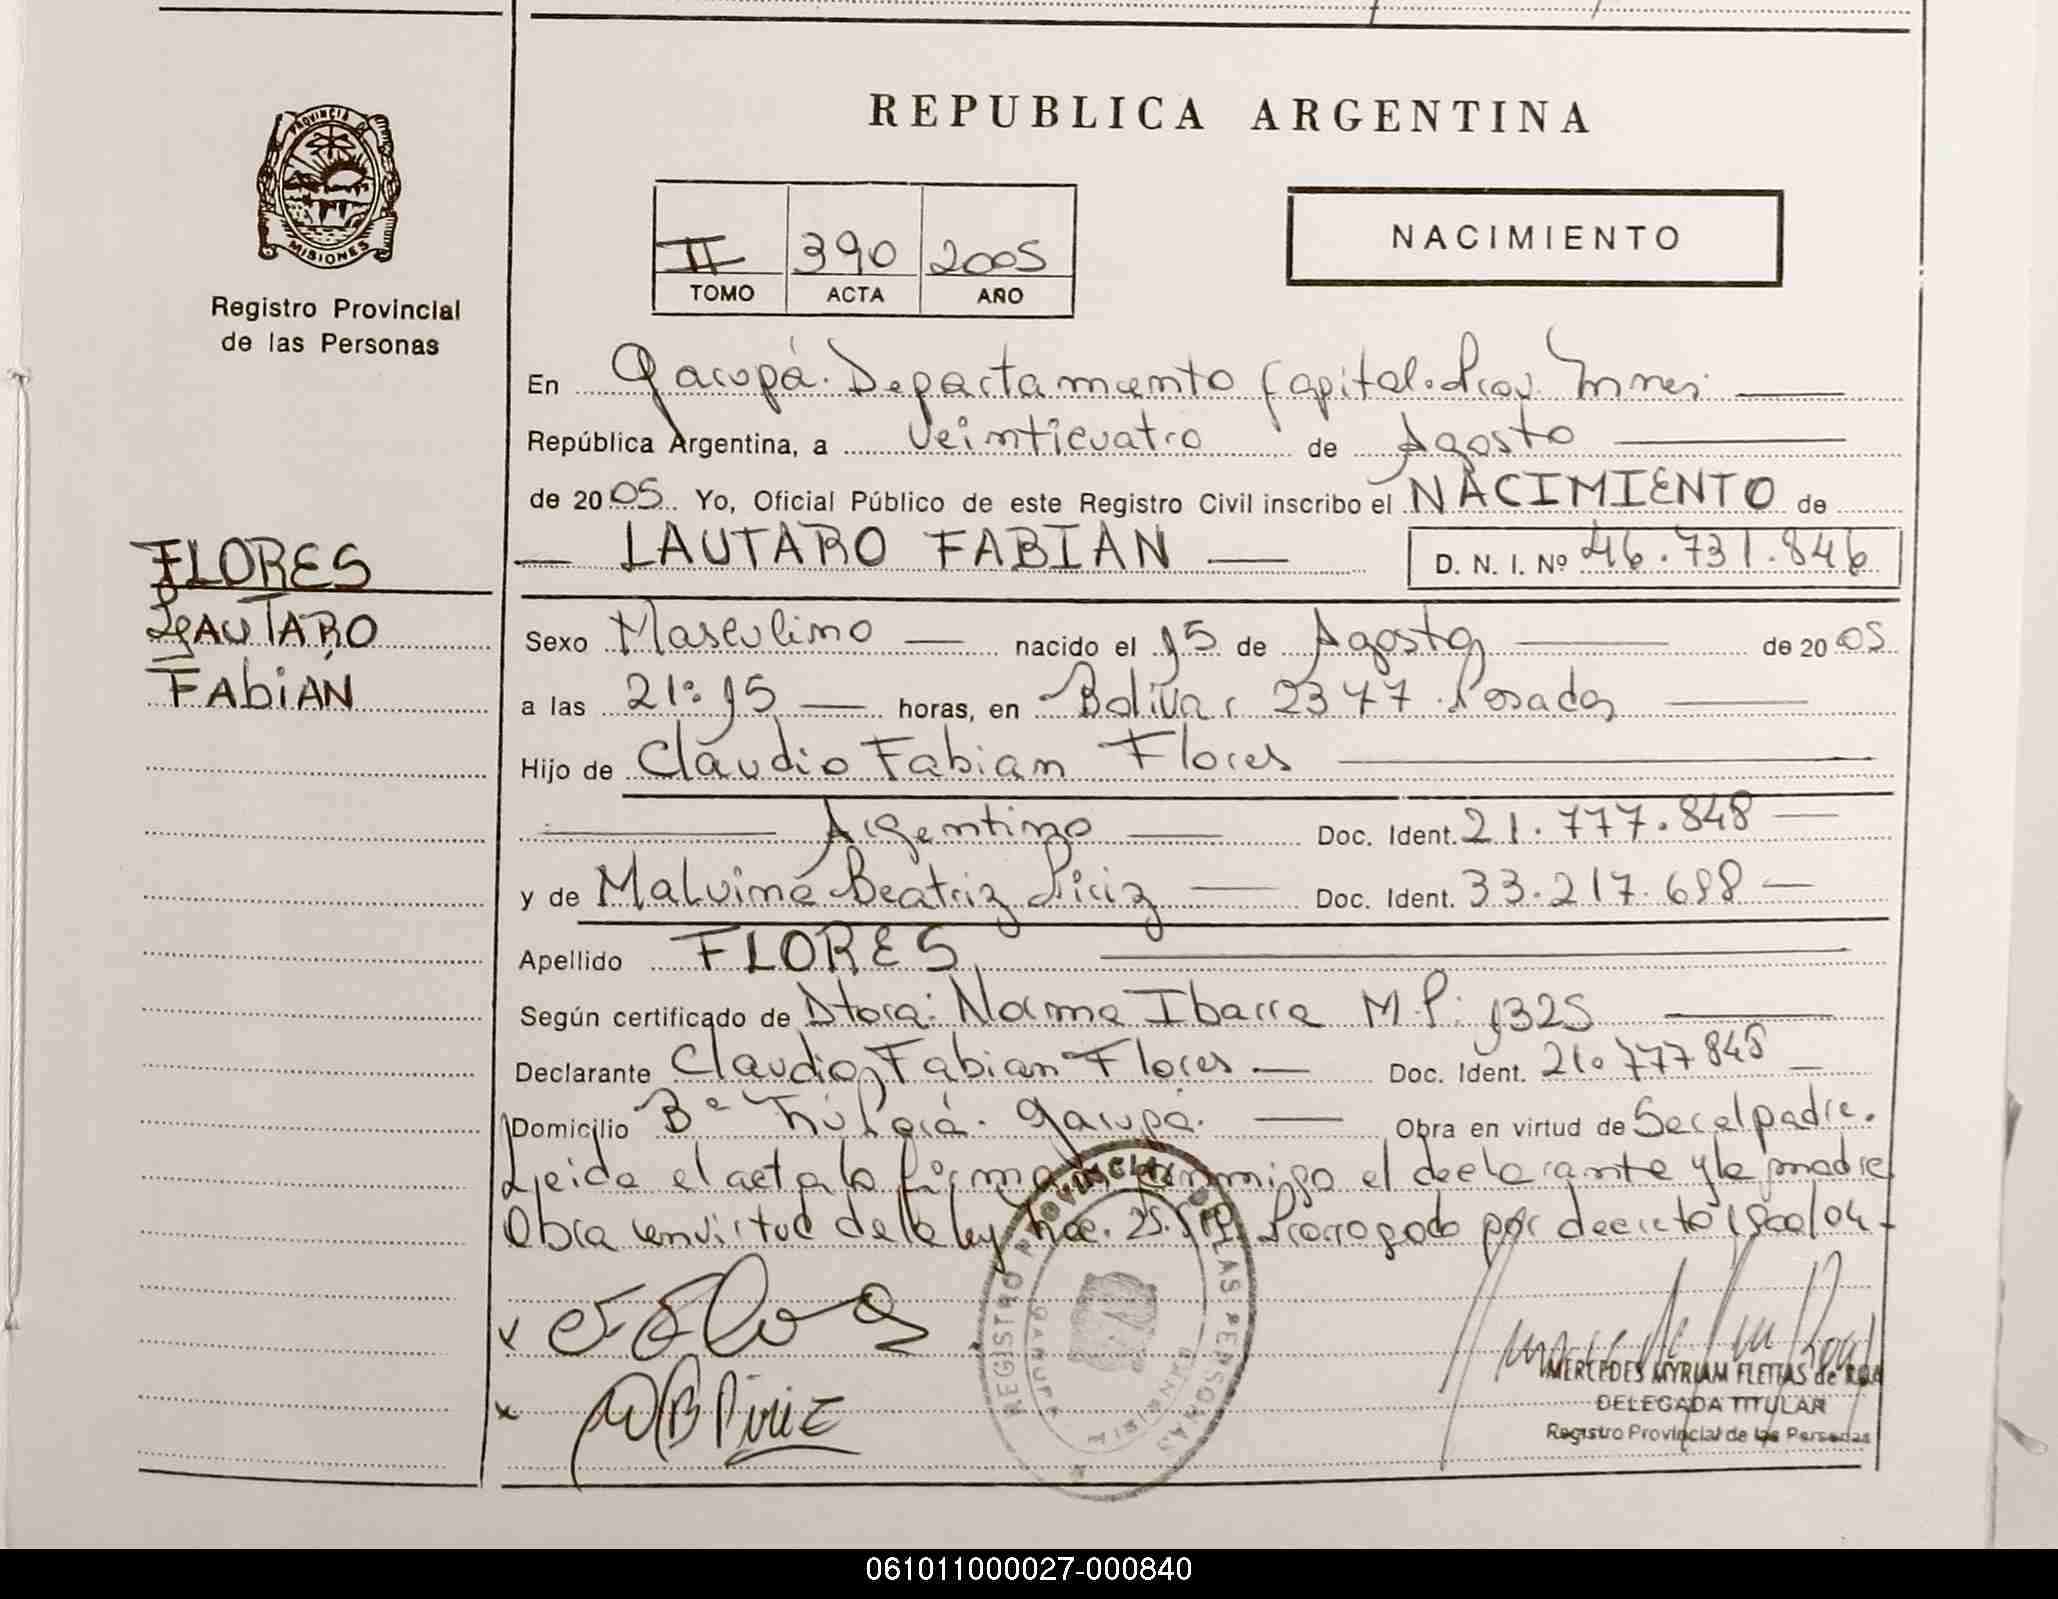 PROVINCIA DE
MISIONES
Registro Provincial
de las Personas
FLORES
LAUTARO
FAbiAN
REPUBLICA ARGENTINA
II 390 2005
TOMO ACTA AÑO
NACIMIENTO
En Garupá. Departamento Capital. Prov. Mnes.
República Argentina, a Veinticuatro de Agosto
de 2005 Yo, Oficial Público de este Registro Civil inscribo el NACIMIENTO de
LAUTARO FABIAN D. N. I. Nº 46.731.846
Sexo Masculino nacido el 15 de Agosto de 2005
a las 21:15 horas, en Bolivar 2347 Posadas
Hijo de Claudio Fabian Flores
Argentino Doc. Ident. 21.777.848
y de Malvina Beatriz Piriz Doc. Ident. 33.217.698
Apellido FLORES
Según certificado de Dtora: Norma Ibarra M.P: 1325
Declarante Claudio Fabian Flores Doc. Ident. 21.777.848
Domicilio Bº Garupá. Obra en virtud de Ser el padre.
Leida el acta la firman conmigo el declarante y la madre
Obra en virtud de la ley Prorrogado por decreto
REGISTRO PROVINCIAL DE LAS PERSONAS
GARUPA
MB Piriz
MERCEDES MYRIAM FLEITAS de ROA
DELEGADA TITULAR
Registro Provincial de las Personas
061011000027-000840